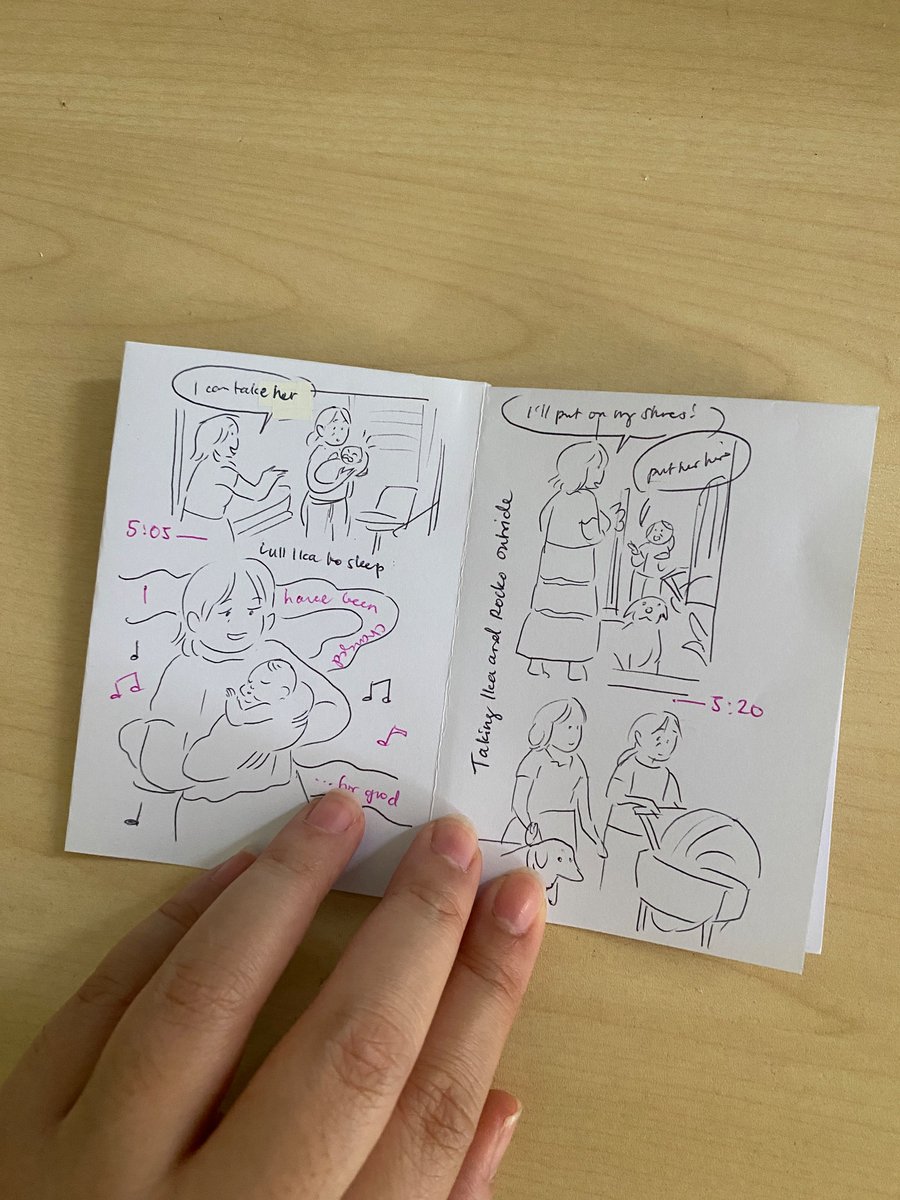 I can take her
5:05
Lull Ika to sleep
I have been
changed
... for good
I'll put on my shoes!
put her here
Taking Ika and Rocko outside
5:20